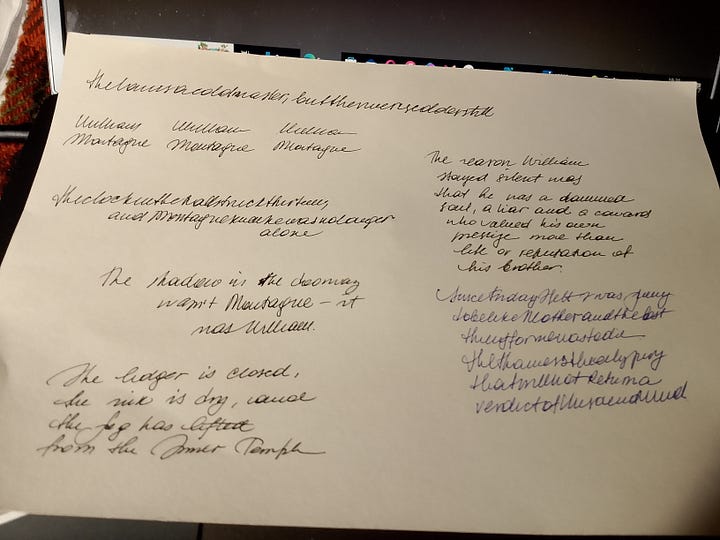 thelawisacoldmaster, buttheriveriscolderstill
William William William
Montague Montague Montague
theclockinthehallstruckthirteen,
and Montagueknewhewasnolonger
alone
The shadow in the doorway
wasn't Montague – it
was William.
The ledger is closed,
the ink is dry, and
the fog has lifted
from the Inner Temple
The reason William
stayed silent was
that he was a damned
soul, a liar and a coward
who valued his own
prestige more than
life or reputation of
his brother.
SinceFridayIfeltIwasgoing
tobelikeMotherandthebest
thingformewastodie
theThamesistheonlyjury
thatwillnotreturna
verdictof